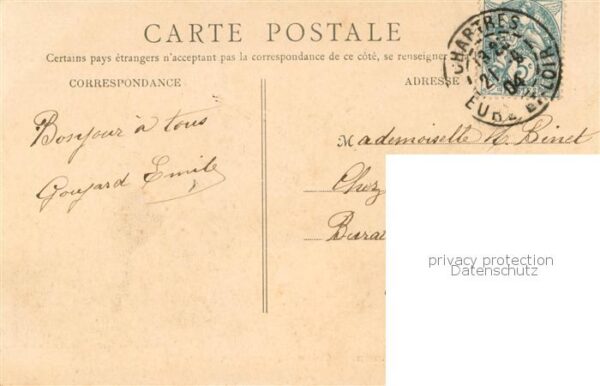 CARTE POSTALE
Certains pays étrangers n'acceptant pas la correspondance de ce côté, se renseigner
CORRESPONDANCE
ADRESSE
CHARTRES
EURE
Bonjour à tous
Goujard Emile
Mademoiselle Binet
Chez
privacy protection
Datenschutz